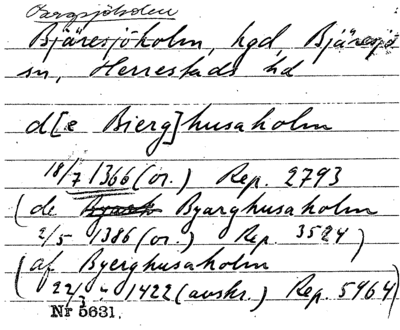 Bjäresjöholm, hgd, Bjäresjö
sn, Herrestads hd
d[e Bierg]husaholm
18/7 1366 (or.) Rep. 2793
(de Byarghusaholm
2/5 1386 (or.) Rep. 3524)
(af Byerghusaholm
22/3 1422 (avskr.) Rep. 5964)
Nr 5631.